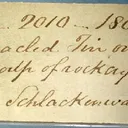 . 2010 – 180
acled Tin ou
orth of rockag
Schlackenwa